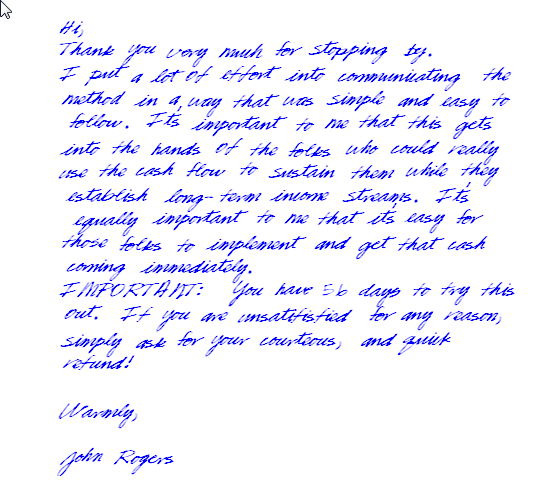 Hi,
Thank you very much for stopping by.
I put a lot of effort into communicating the
method in a way that was simple and easy to
follow. It's important to me that this gets
into the hands of the folks who could really
use the cash flow to sustain them while they
establish long-term income streams. It's
equally important to me that it's easy for
those folks to implement and get that cash
coming immediately.
IMPORTANT: You have 56 days to try this
out. If you are unsatisfied for any reason,
simply ask for your courteous, and quick
refund!
Warmly,
John Rogers